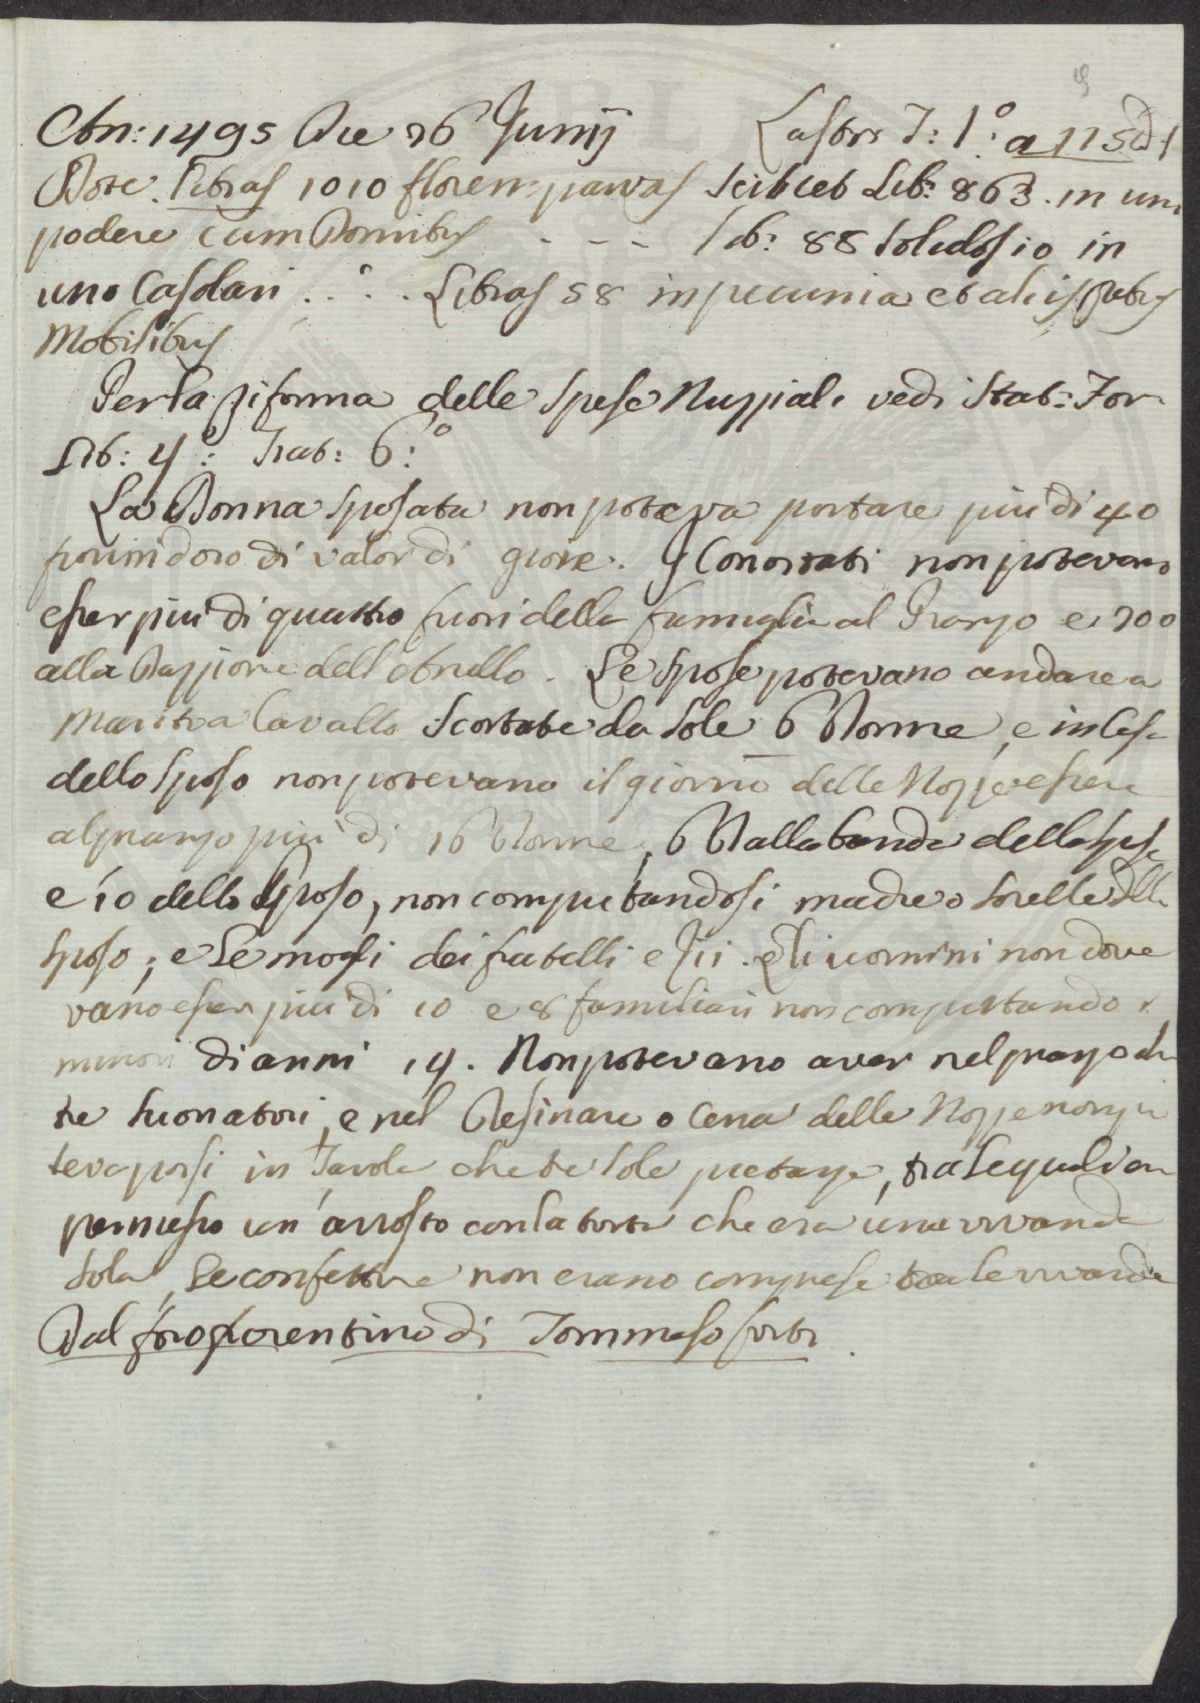 Ctn: 1495 Die 26 Junij Lastri T: 1.° a 115
Dote. Libras 1010 floren: parvas scilicet Lib: 863. in uno
podere cum Domibus - - - Lib: 88 soldos 10 in
uno Casolari . . . . Libras 58 in pecunia et aliis rebus
Mobilibus
Per la riforma delle spese Nuzziali vedi Stat: For
Lib: 4.° Trat: 6.°
La Donna sposata non poteva portare piu di 40
fiorini doro di valor di gioie. I Convitati non potevano
esser piu di quattro fuori della famiglia al Pranzo e 200
alla Dazzione dell Anello. Le spose potevano andare a
Marito a Cavallo scortate da sole 6 Donne, e in Casa
dello sposo non potevano il giorno delle Nozze essere
al pranzo piu di 16 Donne, 6 dalla banda della sposa
e 10 dello sposo, non computandosi madre o sorelle dello
sposo, e le mogli dei fratelli e Zii. Gli uomini non dove
vano esser piu di 10 e 8 familiari non computando i
minori di anni 14. Non potevano aver nel pranzo che
tre suonatori, e nel Desinare o Cena delle Nozze non po
teva porsi in Tavola che tre sole pietanze, tra le quali era
permesso un' arrosto con la torta che era una vivanda
sola, le confetture non erano comprese tra le vivande
Dal foro fiorentino di Tommaso forti